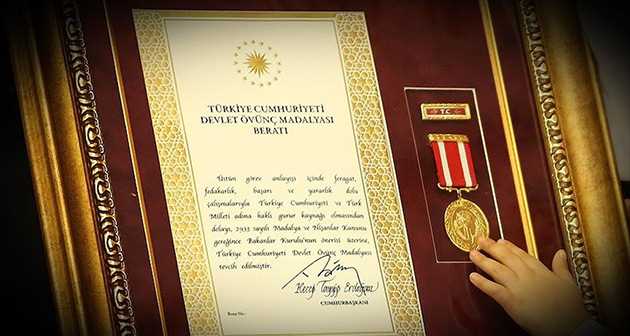 TÜRKİYE CUMHURİYETİ
DEVLET ÖVÜNÇ MADALYASI
BERATI
Üstün görev anlayışı içinde feragat,
fedakarlık, başarı ve yararlık dolu
çalışmalarıyla Türkiye Cumhuriyeti ve Türk
Milleti adına haklı gurur kaynağı olmasından
dolayı, 2933 sayılı Madalya ve Nişanlar Kanunu
gereğince Bakanlar Kurulu'nun önerisi üzerine,
Türkiye Cumhuriyeti Devlet Övünç Madalyası
tevcih edilmiştir.
Recep Tayyip Erdoğan
CUMHURBAŞKANI
Berat No.:
T.C.